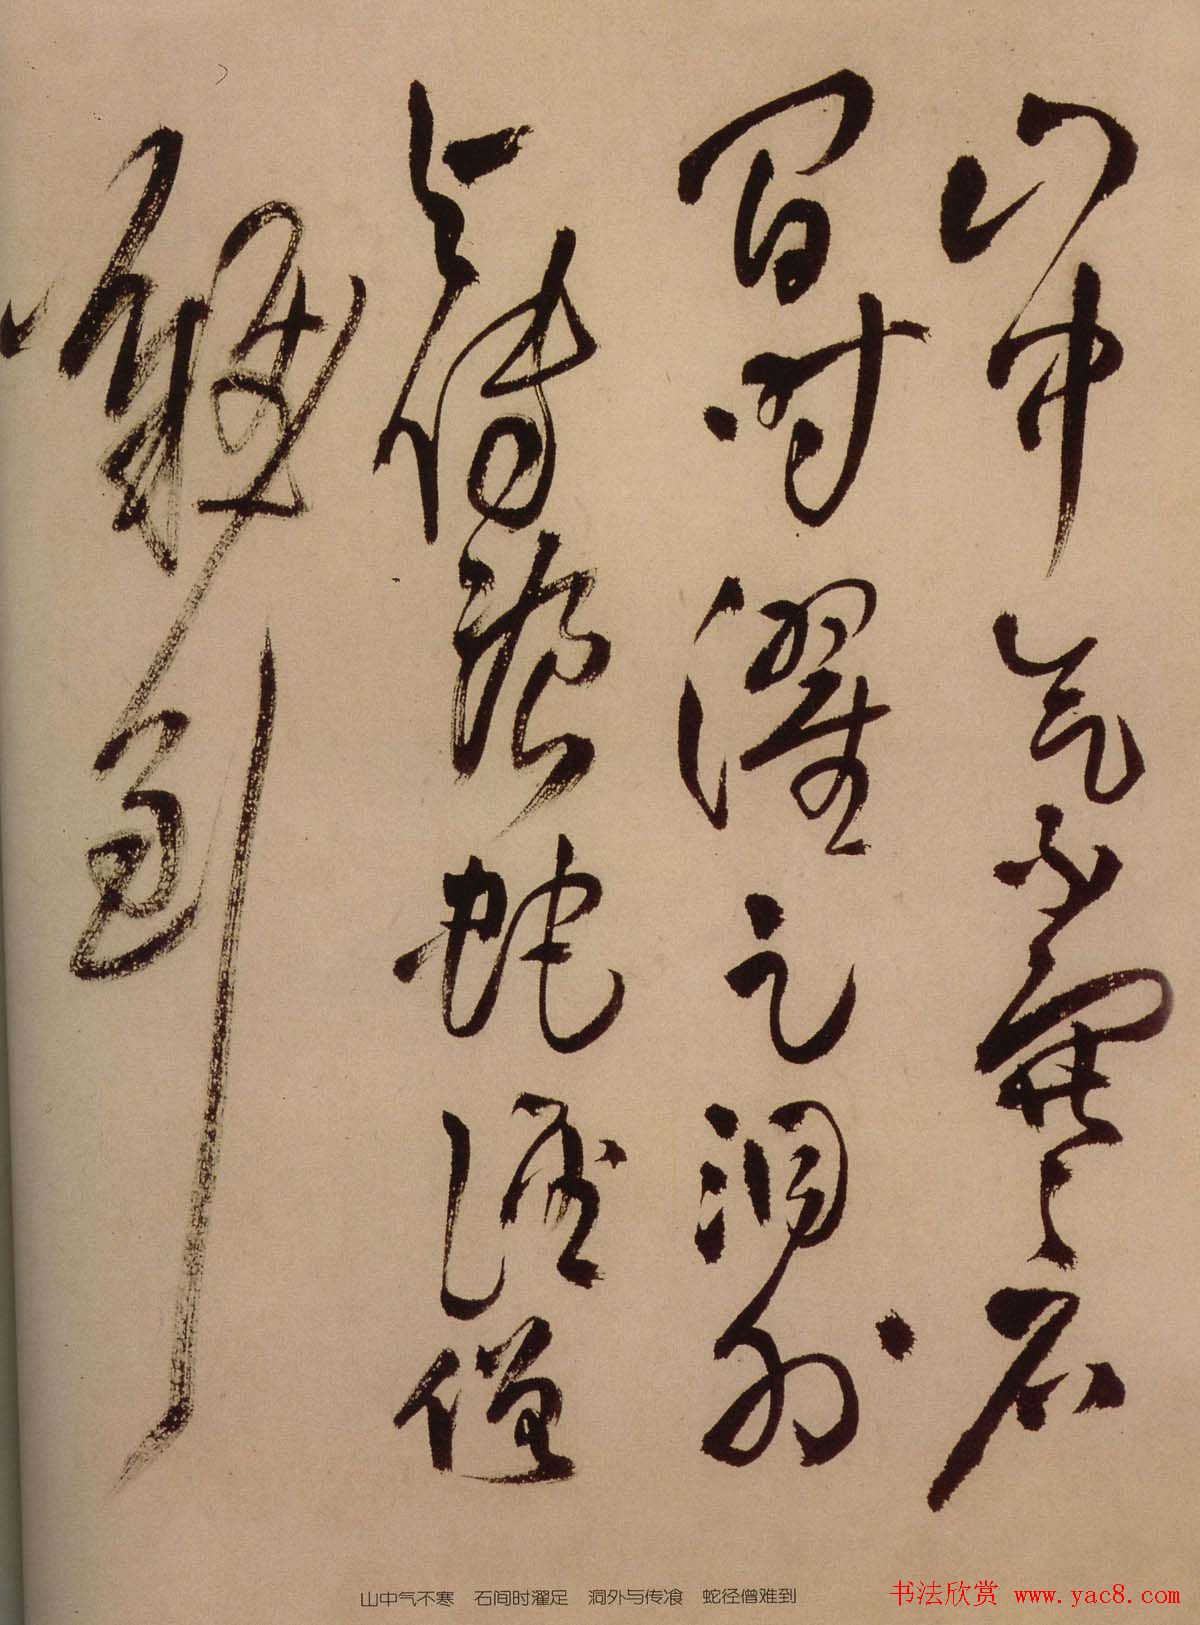 山中气不寒石
間时濯足洞外
与傳飡蛇徑僧
難到
山中气不寒 石间时濯足 洞外与传飡 蛇径僧难到
书法欣赏 www.yac8.com